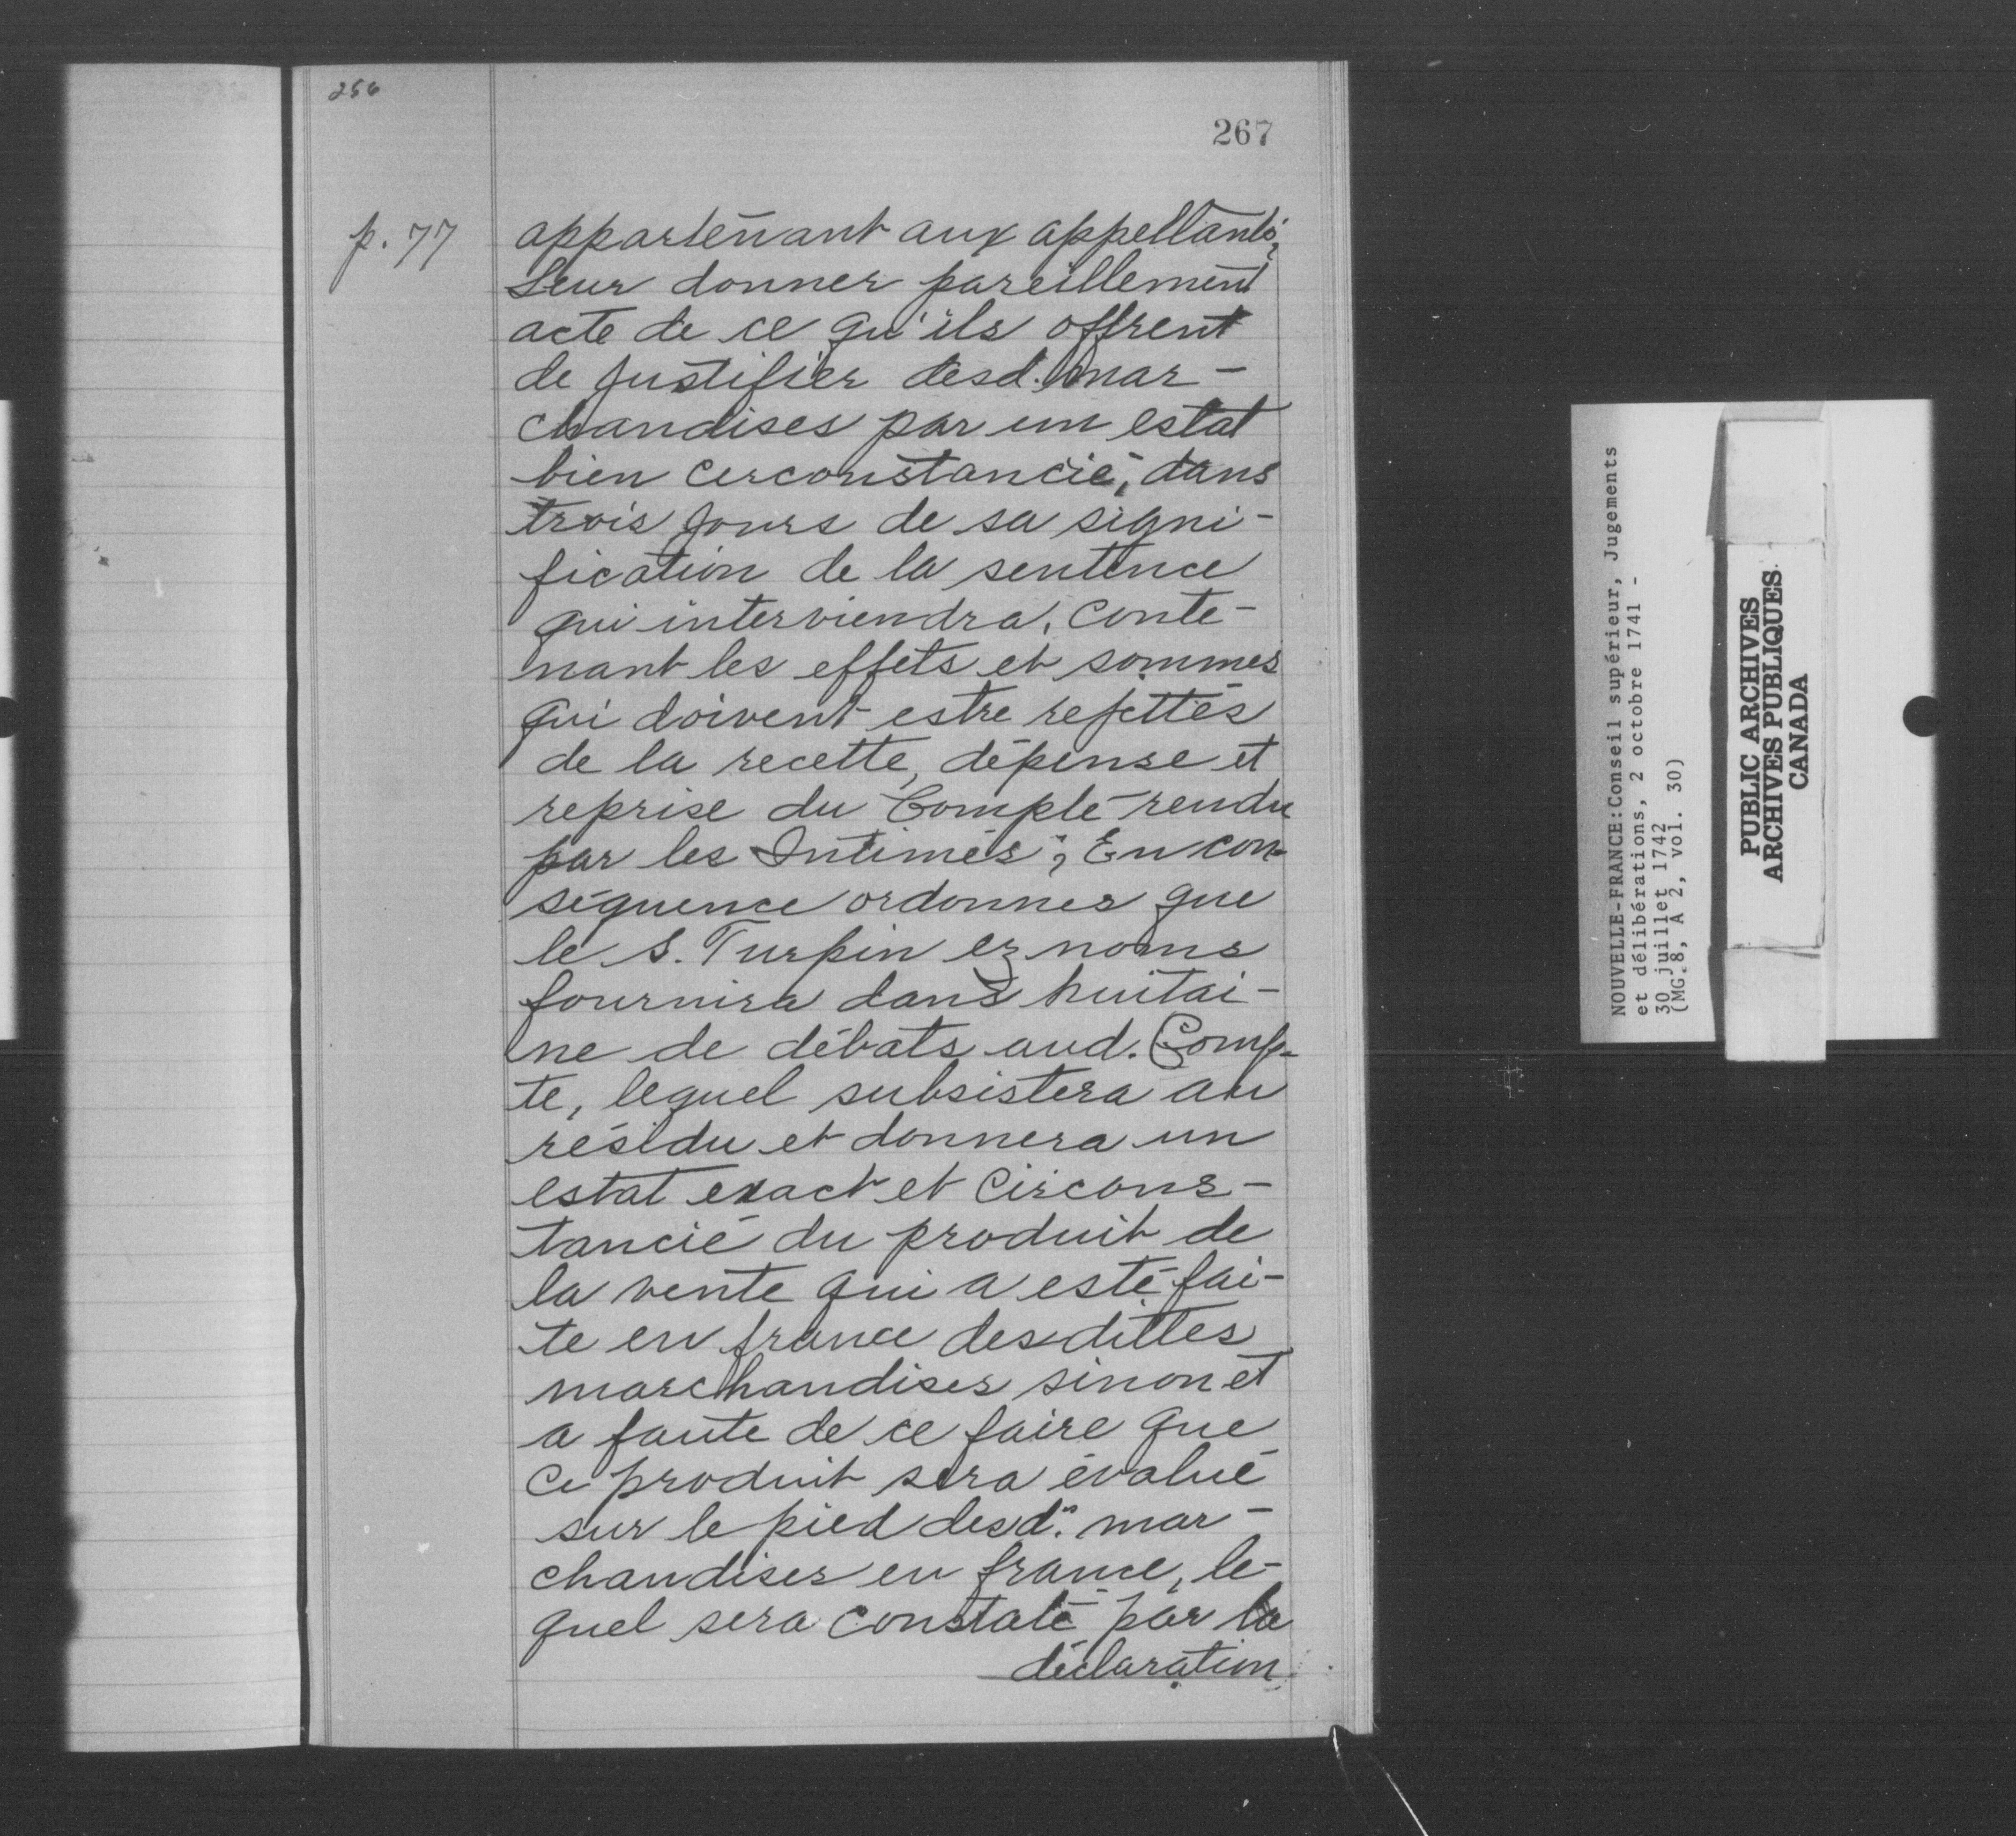 256
267
p. 77
appartenant aux appellants;
Leur donner pareillement
acte de ce qu'ils offrent
de justifier desd. mar-
chandises par un estat
bien cerconstancié, dans
trois jours de sa signi-
fication de la sentence
qui interviendra, conte-
nant les effets et sommes
qui doivent estre rejettés
de la recette, dépense et
reprise du Compte rendu
par les Intimés; En con-
séquence ordonner que
le S. Turpin ez noms
fournira dans huitai-
ne de débats aud. Comp-
te, lequel subsistera au
résidu et donnera un
estat exact et circons-
tancié du produit de
la vente qui a esté fai-
te en france desdittes
marchandises sinon et
a faute de ce faire que
ce produit sera évalué
sur le pied desd. mar-
chandises en france, le-
quel sera constaté par la
déclaration
NOUVELLE-FRANCE:Conseil supérieur, Jugements
et délibérations, 2 octobre 1741 -
30 juillet 1742
(MG.8, A 2, vol. 30)
PUBLIC ARCHIVES
ARCHIVES PUBLIQUES
CANADA